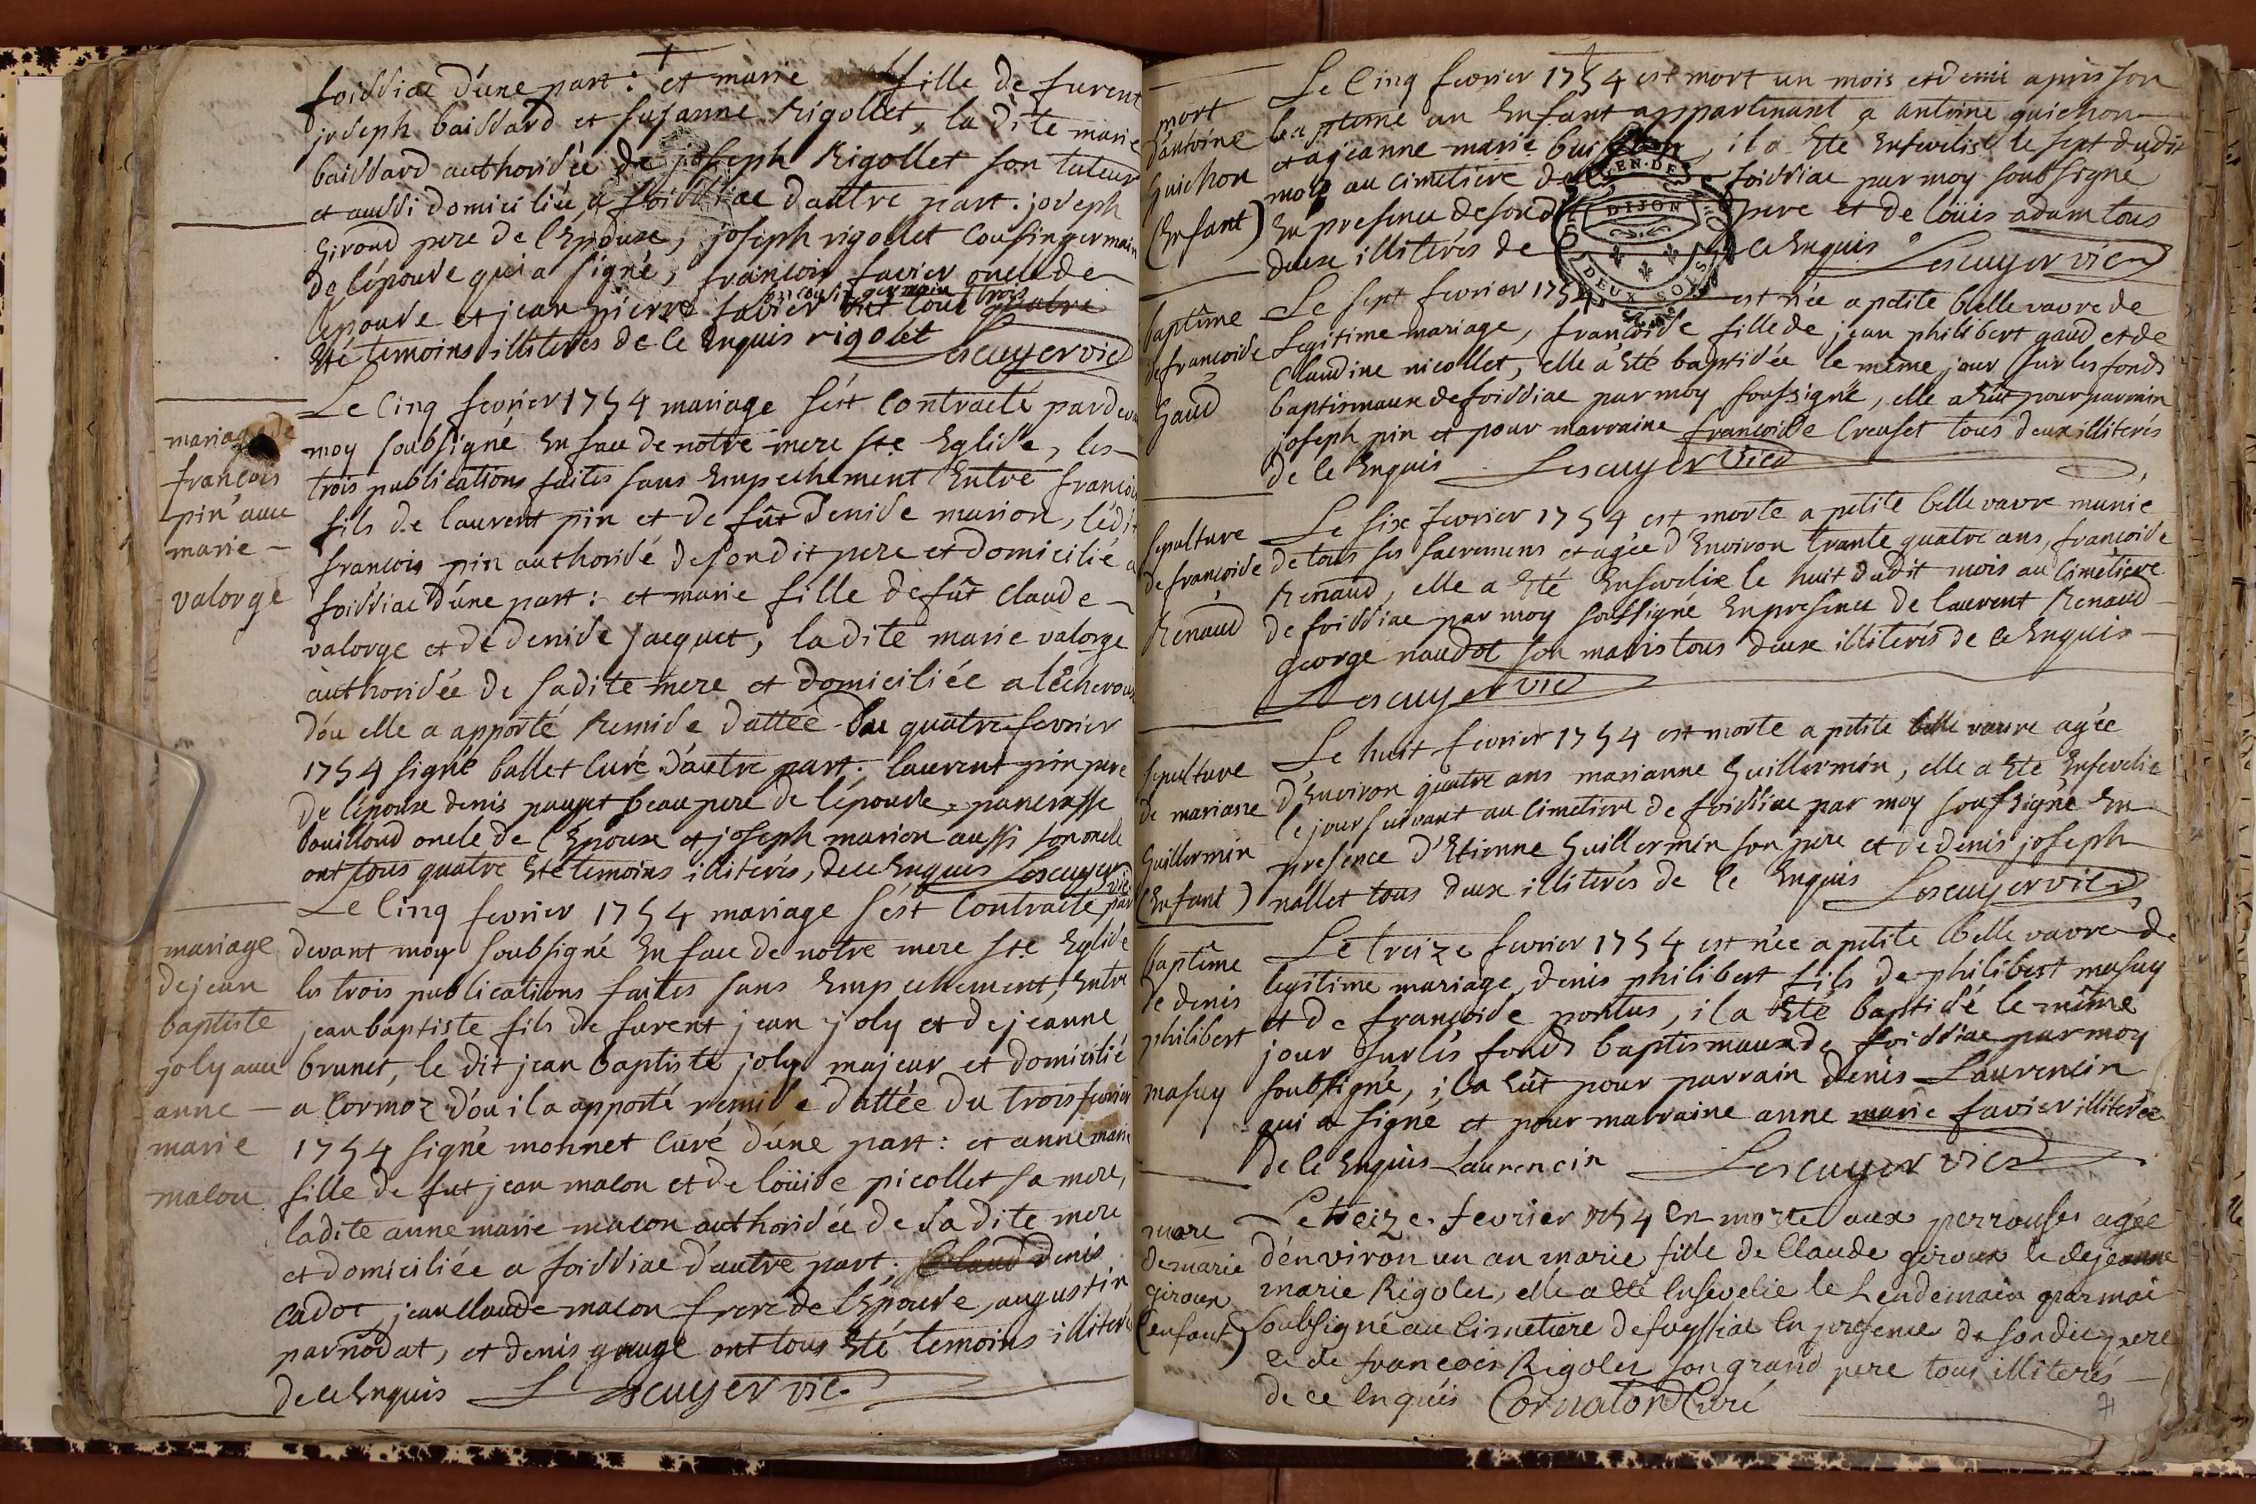 foissiac d'une part : et marie fille de furent
joseph baissard et susanne Rigollet, la dite marie
baissard authorisée de joseph Rigollet son tuteur
et aussi domiciliée a foissiac d'autre part. joseph
Giroud pere de l'Epouse, joseph rigollet Cousin germain
de lépouse qui a signé, francois favier oncle de
cousin germain trois
lepouse et jean pierre favier ont tous quatre
Eté temoins illiterés de ce Enquis rigolet Lescuyer vic
mariage de
francois
pin avec
marie –
valorge
Le Cinq fevrier 1754 mariage s'est Contracté pardevant
moy soubsigné En face de notre mere ste Eglise, les
trois publications faites sans Empechement Entre francois
fils de laurent pin et de fût Denise marion, ledit
francois pin authorisé de sondit pere et domicilié a
foissiac d'une part : et marie fille de fût Claude
valorge et de denise jacquet, la dite marie valorge
authorisée de sadite mere et domiciliée a
d'ou elle a apporté Remise dattée du quatre fevrier
1754 signé ballet Curé d'autre part. laurent pin pere
de lépoux denis pauget beau pere de lépouse,
bouilloud oncle de l'Epoux et joseph marion aussi son oncle
ont tous quatre Eté temoins illiterés, de ce Enquis Lescuyer vic
mariage
de jean
baptiste
joly avec
anne –
marie
macon
Le Cinq fevrier 1754 mariage s'est Contracté par
devant moy soubsigné En face de notre mere ste Eglise
les trois publications faites sans Empechement, Entre
jean baptiste fils de furent jean joly et de jeanne
brunet, le dit jean baptiste joly majeur et domicilié
a Cormoz d'ou il a apporté remise dattée du trois fevrier
1754 signé monnet Curé d'une part : et anne marie
fille de fut jean macon et de loüise picollet sa mere,
ladite anne marie macon authorisée de sa dite mere
et domiciliée a foissiac d'autre part, Claud denis
cadot, jean Claude macon frere de l'Epouse, augustin
parnodat, et denis gauge ont tous Eté temoins illiterés
de ce Enquis Lescuyer vic.
mort
d'antoine
Guichon
(Enfant)
Le Cinq fevrier 1754 est mort un mois et demi apres son
baptême un Enfant appartenant a antoine guichon
et a jeanne marie, il a Eté Enseveli le sept dudit
mois au Cimetiere de foissiac par moy soubsigné
En presence de sond pere et de loüis adam tous
deux illiterés de ce Enquis Lescuyer vic
GEN. DE DIJON
DEUX SOLS
baptême
de francoise
Gaud
Le sept fevrier 1754 est née a petite belle vavre de
Legitime mariage, francoise fille de jean philibert gaud et de
Claudine nicollet, elle a Eté baptisée le même jour sur les fonds
baptismaux de foissiac par moy soussigné, elle a Eut pour parrain
joseph pin et pour marraine francoise Creuset tous deux illiterés
de ce Enquis Lescuyer vic
sepulture
de francoise
Renaud
Le six fevrier 1754 est morte a petite belle vavre munie
de tous ses sacremens et agée d'Environ trante quatre ans, francoise
Renaud, elle a Eté Ensevelie le huit dudit mois au Cimetiere
de foissiac par moy soussigné En presence de laurent Renaud
george naudot son maris tous deux illiterés de ce Enquis
Lescuyer vic
sepulture
de mariane
Guillermin
(Enfant)
Le huit fevrier 1754 est morte a petite belle vavre agée
d'Environ quatre ans marianne Guillermin, elle a Eté Ensevelie
le jour suivant au Cimetiere de foissiac par moy soussigné En
presence d'Etienne Guillermin son pere et de denis joseph
nallet tous deux illiterés de ce Enquis Lescuyer vic
baptême
de denis
philibert
masuy
Le treize fevrier 1754 est née a petite belle vavre de
legitime mariage, denis philibert fils de philibert masuy
et de francoise pontus, il a Eté baptisé le même
jour sur les fonds baptismaux de foissiac par moy
soubsigné, il a Eût pour parrain denis Laurencin
qui a signé et pour marraine anne marie favier illiterée
de ce Enquis Laurencin Lescuyer vic
mort
de marie
giroux
(enfant)
Le treize fevrier 1754 en morte aux perrouses agée
d'environ un an marie fille de Claude giroux et de jeanne
marie Rigolet, elle a été Ensevelie le Lendemain par moi
soubsigné au Cimetiere de foyssiac En presence de sondit pere
et de francois Rigolet son grand pere tous illiterés
de ce enquis Cornaton Curé
7